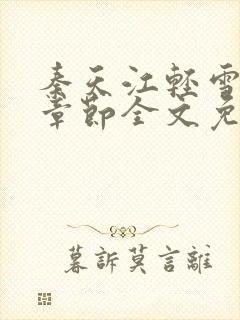 秦天江轻雪
章节全文免
暮訴莫言離